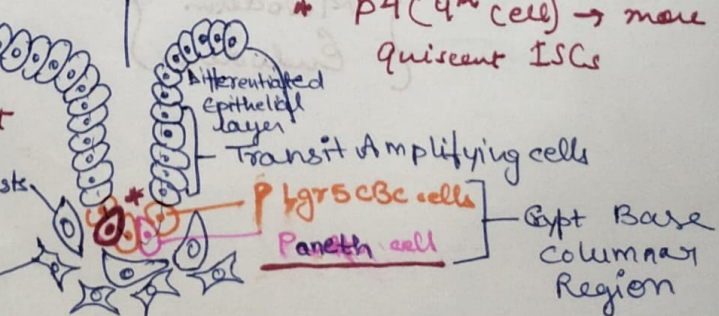 * P4 (4th cell) → more
quiscent ISCs
Differentiated
Epithelial
layer
Transit Amplifying cells
sts
*
lgr5 CBC cells
Paneth cell
Crypt Base
Columnar
Region